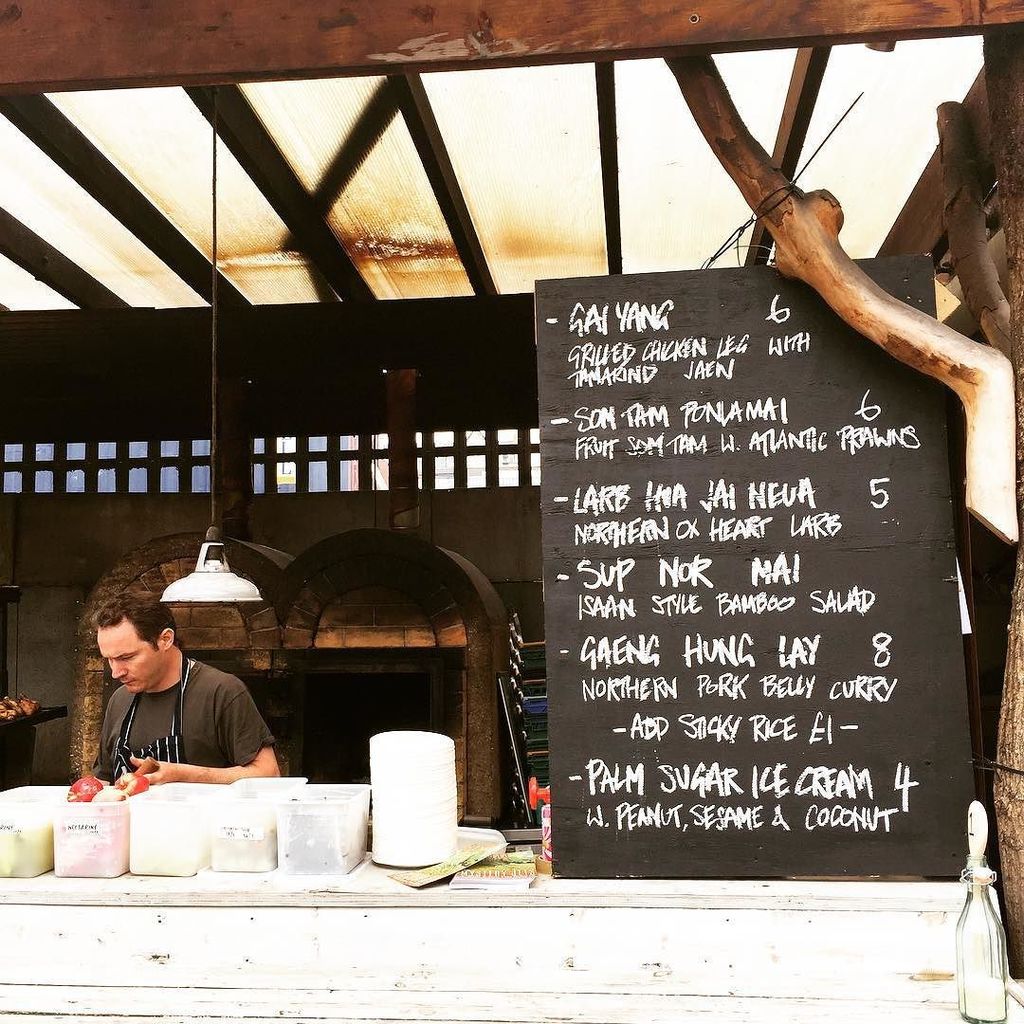 - GAI YANG 6
GRILLED CHICKEN LEG WITH
TAMARIND JAEN
- SOM TAM PONLAMAI 6
FRUIT SOM TAM W. ATLANTIC PRAWNS
- LARB HUA JAI NEUA 5
NORTHERN OX HEART LARB
- SUP NOR MAI
ISAAN STYLE BAMBOO SALAD
- GAENG HUNG LAY 8
NORTHERN PORK BELLY CURRY
- ADD STICKY RICE £1 -
- PALM SUGAR ICE CREAM 4
W. PEANUT, SESAME & COCONUT
NECTARINE